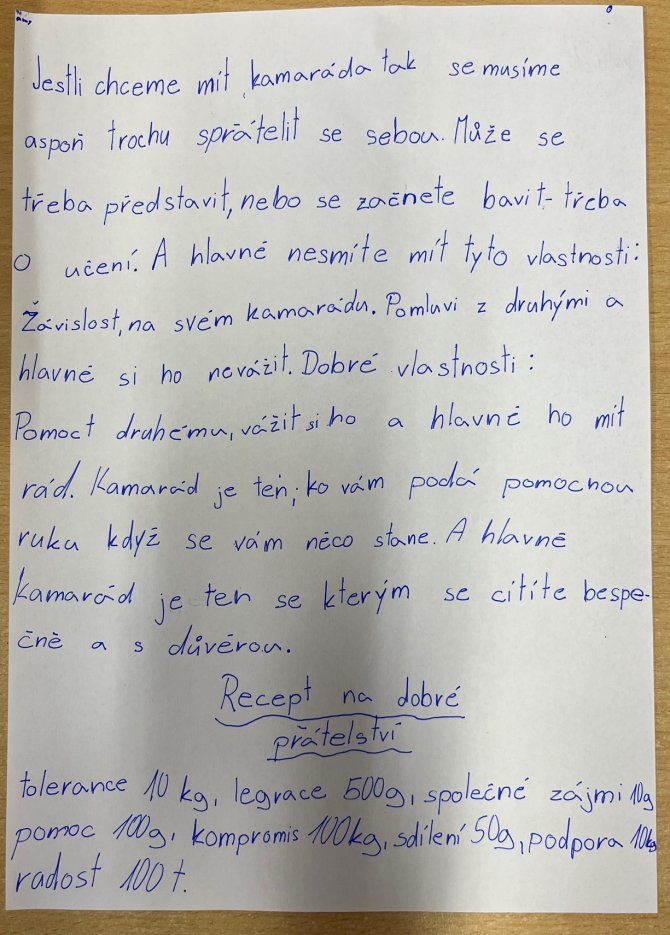 Jestli chceme mít kamaráda tak se musíme
aspoň trochu spřátelit se sebou. Může se
třeba představit, nebo se začnete bavit - třeba
o učení. A hlavně nesmíte mít tyto vlastnosti:
Žávislost, na svém kamarádu. Pomluvi z druhými a
hlavně si ho nevážit. Dobré vlastnosti:
Pomoct druhému, vážit si ho a hlavně ho mít
rád. Kamarád je ten, ko vám podá pomocnou
ruku když se vám něco stane. A hlavně
kamarád je ten se kterým se cítíte bespe-
čně a s důvěrou.
Recept na dobré
přátelství
tolerance 10 kg, legrace 500g, společné zájmi 10g
pomoc 100g, kompromis 100kg, sdílení 50g, podpora 10kg
radost 100 t.